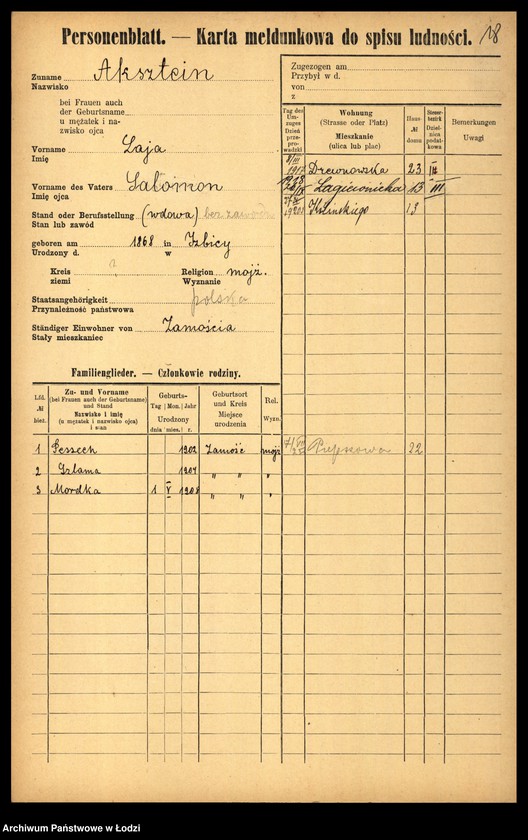 Personenblatt. — Karta meldunkowa do spisu ludności. 18
Zuname Aksztein
Nazwisko
bei Frauen auch
der Geburtsname
u mężatek i na-
zwisko ojca
Vorname Łaja
Imię
Vorname des Vaters Salomon
Imię ojca
Stand oder Berufsstellung (wdowa) bez zawodu
Stan lub zawód
geboren am 1868 in Izbicy
Urodzony d. w
Kreis ? Religion mojż.
ziemi Wyznanie
Staatsangehörigkeit polska
Przynależność państwowa
Ständiger Einwohner von Zamościa
Stały mieszkaniec
Zugezogen am
Przybył w d.
von
z
Tag des Um-zuges Dzień prze-prowadzki
Wohnung
(Strasse oder Platz)
Mieszkanie
(ulica lub plac)
Haus № domu
Steuer-bezirk Dziel-nica podat-kowa
Bemerkungen
Uwagi
1917 Drewnowska 23 III
Łagiewnicka 13 III
13
Familienglieder. — Członkowie rodziny.
Lfd. № bież.
Zu- und Vorname
(bei Frauen auch der Geburtsname)
und Stand
Nazwisko i imię
(u mężatek i nazwisko ojca)
i stan
Geburts-
Tag Mon. Jahr
Urodzony
dnia mies. r.
Geburtsort
und Kreis
Miejsce
urodzenia
Rel.
Wyzn.
1 1902 Zamość mojż 22
2 Szlama 1907 " " "
3 Mordka 1 V 1908 " " "
Archiwum Państwowe w Łodzi